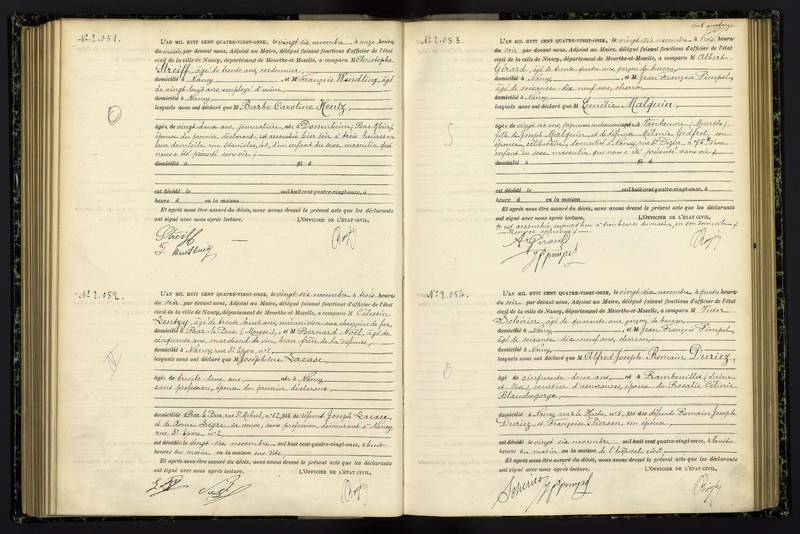 N° 2.051.
L'AN MIL HUIT CENT QUATRE-VINGT-ONZE, le vingt-six novembre à onze heures
du matin par devant nous, Adjoint au Maire, délégué faisant fonctions d'officier de l'état
civil de la ville de Nancy, département de Meurthe-et-Moselle, a comparu M Christophe
Streiff, âgé de trente ans, cordonnier,
domicilié à Nancy, et M François Wendling, âgé
de vingt huit ans, employé d'usine,
domicilié à Nancy,
lesquels nous ont déclaré que M Barbe Caroline Hentz,
âgée de vingt deux ans, journalière, née à Dossenheim (Bas-Rhin),
épouse du premier déclarant, est accouchée hier soir à trois heures en
leur domicile rue Stanislas, 40, d'un enfant du sexe masculin qui
nous a été présenté sans vie.
domicilié à fil d
est décédé le mil huit cent quatre-vingt-onze, à
heure d en la maison
Et après nous être assuré du décès, nous avons dressé le présent acte que les déclarants
ont signé avec nous après lecture. L'OFFICIER DE L'ÉTAT CIVIL,
Streiff
N° 2.052.
L'AN MIL HUIT CENT QUATRE-VINGT-ONZE, le vingt-six novembre à trois heures
du soir par devant nous, Adjoint au Maire, délégué faisant fonctions d'officier de l'état
civil de la ville de Nancy, département de Meurthe-et-Moselle, a comparu M Célestin
âgé de trente huit ans, mécanicien aux chemins de fer,
domicilié à Bar-le-Duc (Meuse), et M Bernard Noël, âgé de
cinquante ans, marchand de vin, beau-frère de la défunte,
domicilié à Nancy, rue St Epvre, n° 2,
lesquels nous ont déclaré que M Joséphine Lacase,
âgée de trente deux ans, née à Nancy
sans profession, épouse du premier déclarant,
domiciliée à Bar-le-Duc, rue St Michel, n° 12, fille de défunt Joseph Lacase,
et de Anne Sigre, sa veuve, sans profession, demeurant à Nancy,
rue St Epvre n° 2,
est décédée le vingt-six novembre mil huit cent quatre-vingt-onze, à huit
heures du matin en la maison sus-dite.
Et après nous être assuré du décès, nous avons dressé le présent acte que les déclarants
ont signé avec nous après lecture. L'OFFICIER DE L'ÉTAT CIVIL,
N° 2.053.
L'AN MIL HUIT CENT QUATRE-VINGT-ONZE, le vingt-six novembre à trois heures
du soir par devant nous, Adjoint au Maire, délégué faisant fonctions d'officier de l'état
civil de la ville de Nancy, département de Meurthe-et-Moselle, a comparu M Albert
Girard, âgé de trente quatre ans, garçon de bureau,
domicilié à Nancy, et M Jean François Pimpel,
âgé de soixante dix neuf ans, charron,
domicilié à Nancy,
lesquels nous ont déclaré que M Emilie Malquin,
âgée de vingt six ans, née à Tandauvre (Meurthe),
fille de Joseph Malquin et de défunte Mélanie Godfrot, son
épouse, célibataire, domiciliée à Nancy, rue St Dizier, n° d'un
enfant du sexe masculin qui nous a été présenté sans vie.
domicilié à fil d
est décédé le mil huit cent quatre-vingt-onze, à
heure d en la maison
Et après nous être assuré du décès, nous avons dressé le présent acte que les déclarants
ont signé avec nous après lecture. L'OFFICIER DE L'ÉTAT CIVIL,
est accouchée aujourd'hui à trois heures du matin, en son domicile
A. Girard
JFPimpel
N° 2.054.
L'AN MIL HUIT CENT QUATRE-VINGT-ONZE, le vingt-six novembre à quatre heures
du soir par devant nous, Adjoint au Maire, délégué faisant fonctions d'officier de l'état
civil de la ville de Nancy, département de Meurthe-et-Moselle, a comparu M Victor
âgé de quarante ans, garçon de bureau,
domicilié à Nancy, et M Jean François Pimpel,
âgé de soixante dix neuf ans, charron,
domicilié à Nancy,
lesquels nous ont déclaré que M Alfred Joseph Romain Duriez,
âgé de cinquante deux ans, né à Rambouillet (Seine
et Oise), courtier d'assurances, époux de Rosalie Célinie
Blanchegorge,
domicilié à Nancy, n° 5, fils des défunts Romain Joseph
Duriez et Françoise Pierson, son épouse,
est décédé le vingt six novembre mil huit cent quatre-vingt-onze, à huit
heures du matin en la maison de l'hôpital civil.
Et après nous être assuré du décès, nous avons dressé le présent acte que les déclarants
ont signé avec nous après lecture. L'OFFICIER DE L'ÉTAT CIVIL,
JFPimpel